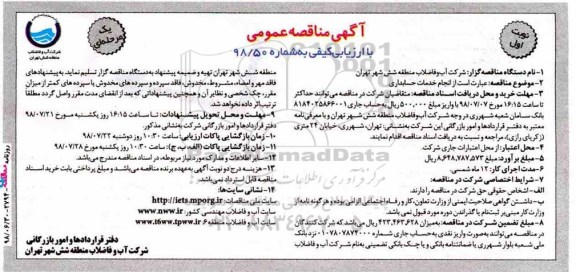 آگهی مناقصه عمومی
با ارزیابی کیفی به شماره ۹۸/۵۰
نوبت اول
یک مرحله‌ای
شرکت آب و فاضلاب
منطقه شش تهران
۱- نام دستگاه مناقصه‌گزار: شرکت آب و فاضلاب منطقه شش شهر تهران
۲- موضوع مناقصه: عبارت است از انجام خدمات حسابداری
۳- مهلت خرید و محل دریافت اسناد مناقصه: متقاضیان شرکت در مناقصه می‌توانند حداکثر
تا ساعت ۱۶:۱۵ مورخ ۹۸/۰۷/۰۷ با واریز مبلغ ۵۰۰,۰۰۰ ریال به حساب جاری ۸۱۸۴۰۲۵۸۶۶۰۰۱
بانک سامان شعبه شهرری در وجه شرکت آب و فاضلاب منطقه شش شهر تهران و با معرفی‌نامه
معتبر به دفتر قراردادها و امور بازرگانی این شرکت به نشانی: تهران، شهرری، خیابان ۲۴ متری
مراجعه و نسبت به دریافت اسناد مناقصه اقدام نمایند.
۴- محل اعتبار: از محل اعتبارات جاری شرکت
۵- مبلغ برآورد: مبلغ ۸,۶۴۸,۷۸۷,۵۷۳ ریال
۶- مدت اجرای کار: ۱۲ ماه شمسی
۷- شرایط اختصاصی شرکت در مناقصه:
الف- اشخاص حقوقی حق شرکت در مناقصه را دارند.
ب- داشتن گواهی صلاحیت ایمنی از وزارت تعاون کار و رفاه اجتماعی الزامی بوده و هرگونه نامه از
وزارت کار مبنی بر ثبت‌نام یا گذراندن دوره مورد قبول نمی‌باشد.
۸- مبلغ تضمین شرکت در مناقصه: به میزان ۴۲۳,۴۶۳,۶۲۸ ریال می‌باشد که شرکت‌کنندگان
در مناقصه می‌توانند به صورت واریز نقدی به حساب جاری شماره ۰۱۰۷۸۰۷۸۷۲۰۰۰ نزد بانک
ملی شعبه بلوار شهرری یا ضمانتنامه بانکی و یا چک بانکی تضمینی به نام شرکت آب و فاضلاب
منطقه شش شهر تهران تهیه و ضمیمه پیشنهاد به دستگاه مناقصه گزار تسلیم نماید. به پیشنهادهای
فاقد مهر و امضاء، مشروط، مخدوش، فاقد سپرده و سپرده‌های مخدوش یا سپرده های کمتر از میزان
مقرر، چک شخصی و نظایر آن و همچنین پیشنهاداتی که بعد از انقضای مدت مقرر واصل گردد مطلقا
ترتیب‌اثر داده نخواهد شد.
۹- مهلت و محل تحویل پیشنهادات: تا ساعت ۱۶:۱۵ روز یکشنبه مورخ ۹۸/۰۷/۲۱
دفتر قراردادها و امور بازرگانی شرکت به نشانی مذکور.
۱۰- زمان بازگشایی پاکات ارزیابی: ساعت ۱۰:۳۰ روز دوشنبه ۹۸/۰۷/۲۲
۱۱- زمان بازگشایی پاکات (الف، ب، ج): ساعت ۱۰:۳۰ روز یکشنبه مورخ ۹۸/۰۷/۲۸
۱۲- سایر اطلاعات و مدارک مورد نیاز مربوطه، در اسناد مناقصه مندرج می‌باشد.
۱۳- هزینه درج دو نوبت آگهی به عهده برنده مناقصه می‌باشد و مبلغ پرداختی بابت خرید اسناد
مناقصه قابل استرداد نمی‌باشد.
۱۴- نشانی سایت‌ها:
سایت ملی مناقصات: http://iets.mporg.ir
سایت آب و فاضلاب مهندسی کشور: www.nww.ir
سایت آب و فاضلاب منطقه ۶: www.t6ww.tpww.ir
دفتر قراردادها و امور بازرگانی
شرکت آب و فاضلاب منطقه شش شهر تهران